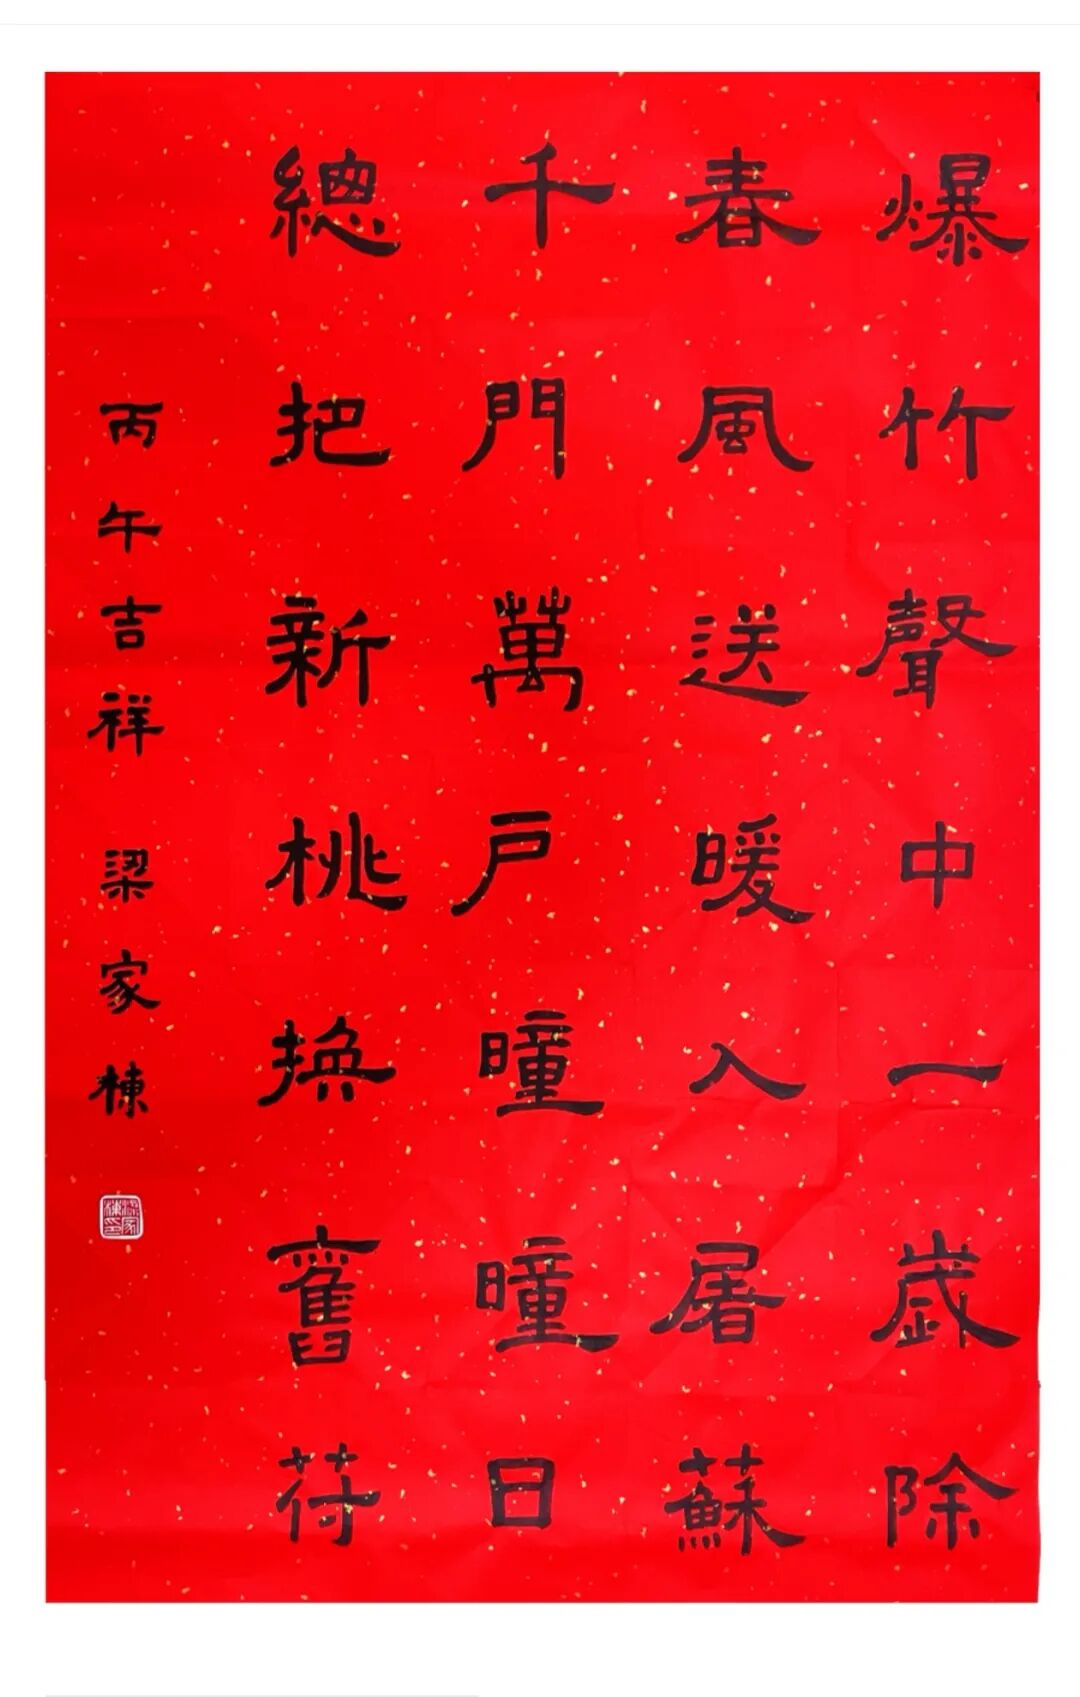 爆竹聲中一歲除
春風送暖入屠蘇
千門萬戶曈曈日
總把新桃換舊苻
丙午吉祥 梁家棟
梁家棟印